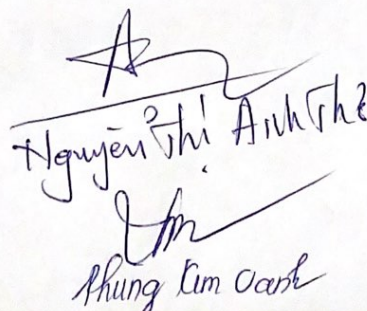 Nguyễn Thị Anh Thơ
Phùng Kim Oanh